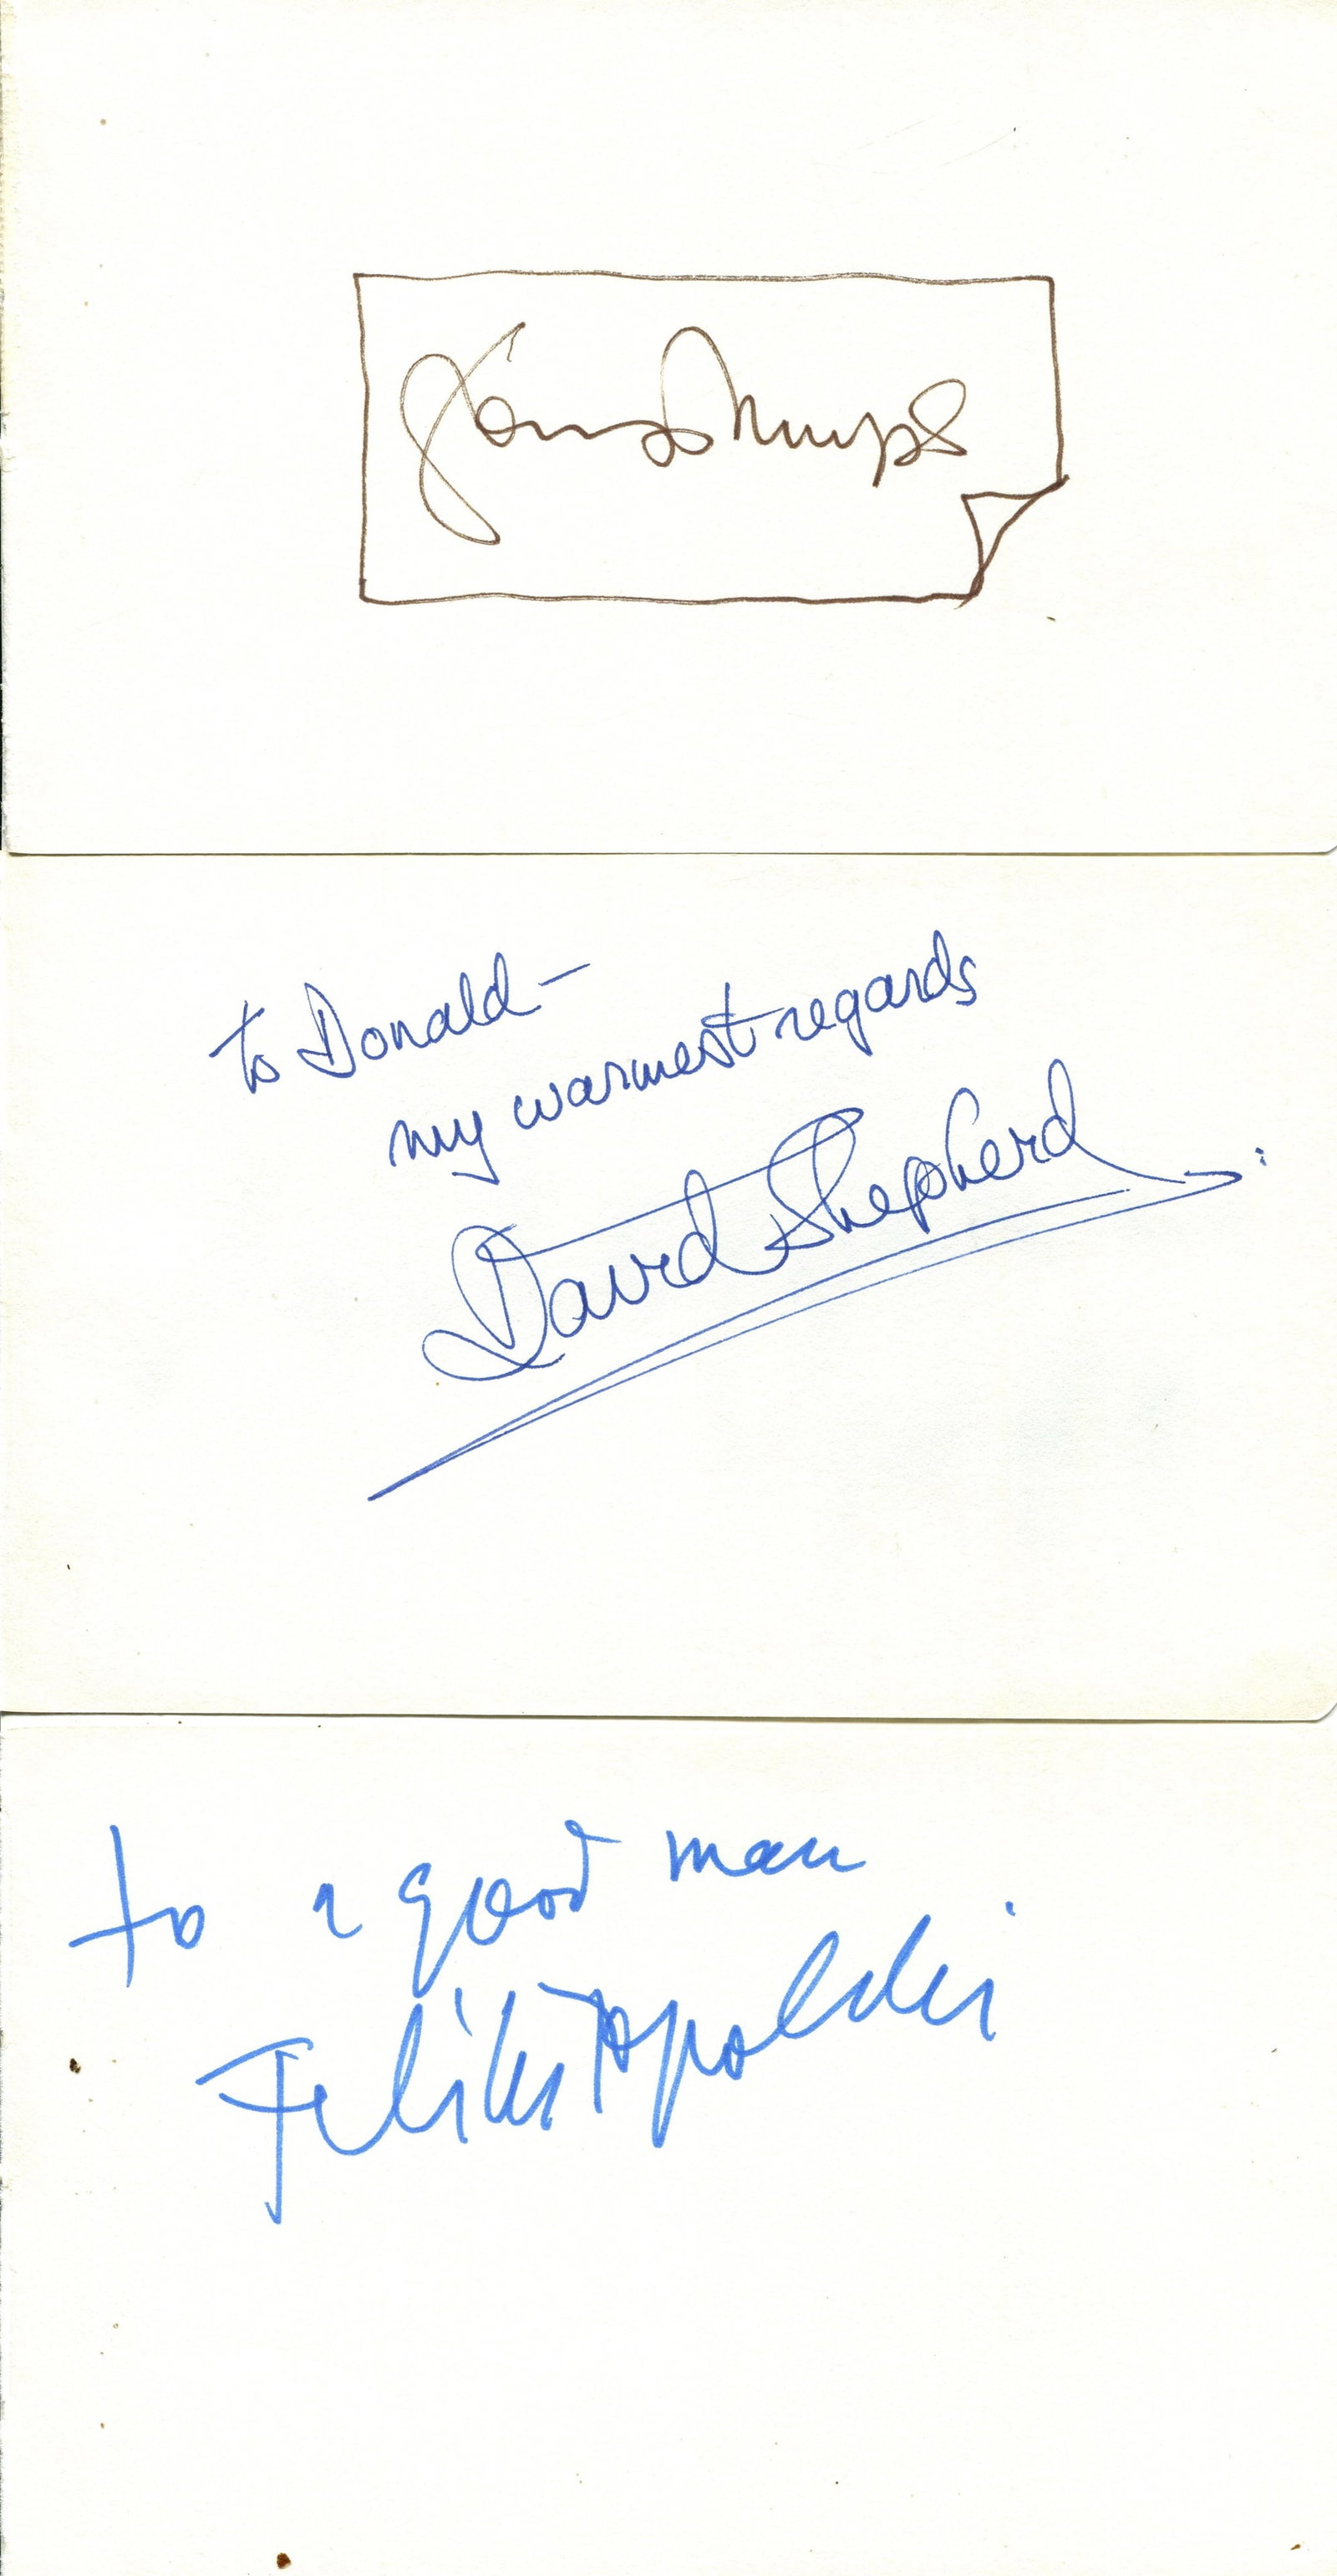 to Donald –
my warmest regards
David Shepherd
to a good man
Feliks Topolski